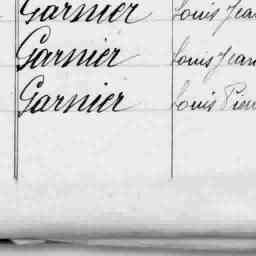 Garnier Louis Jean
Garnier Louis Jean
Garnier Louis Pier